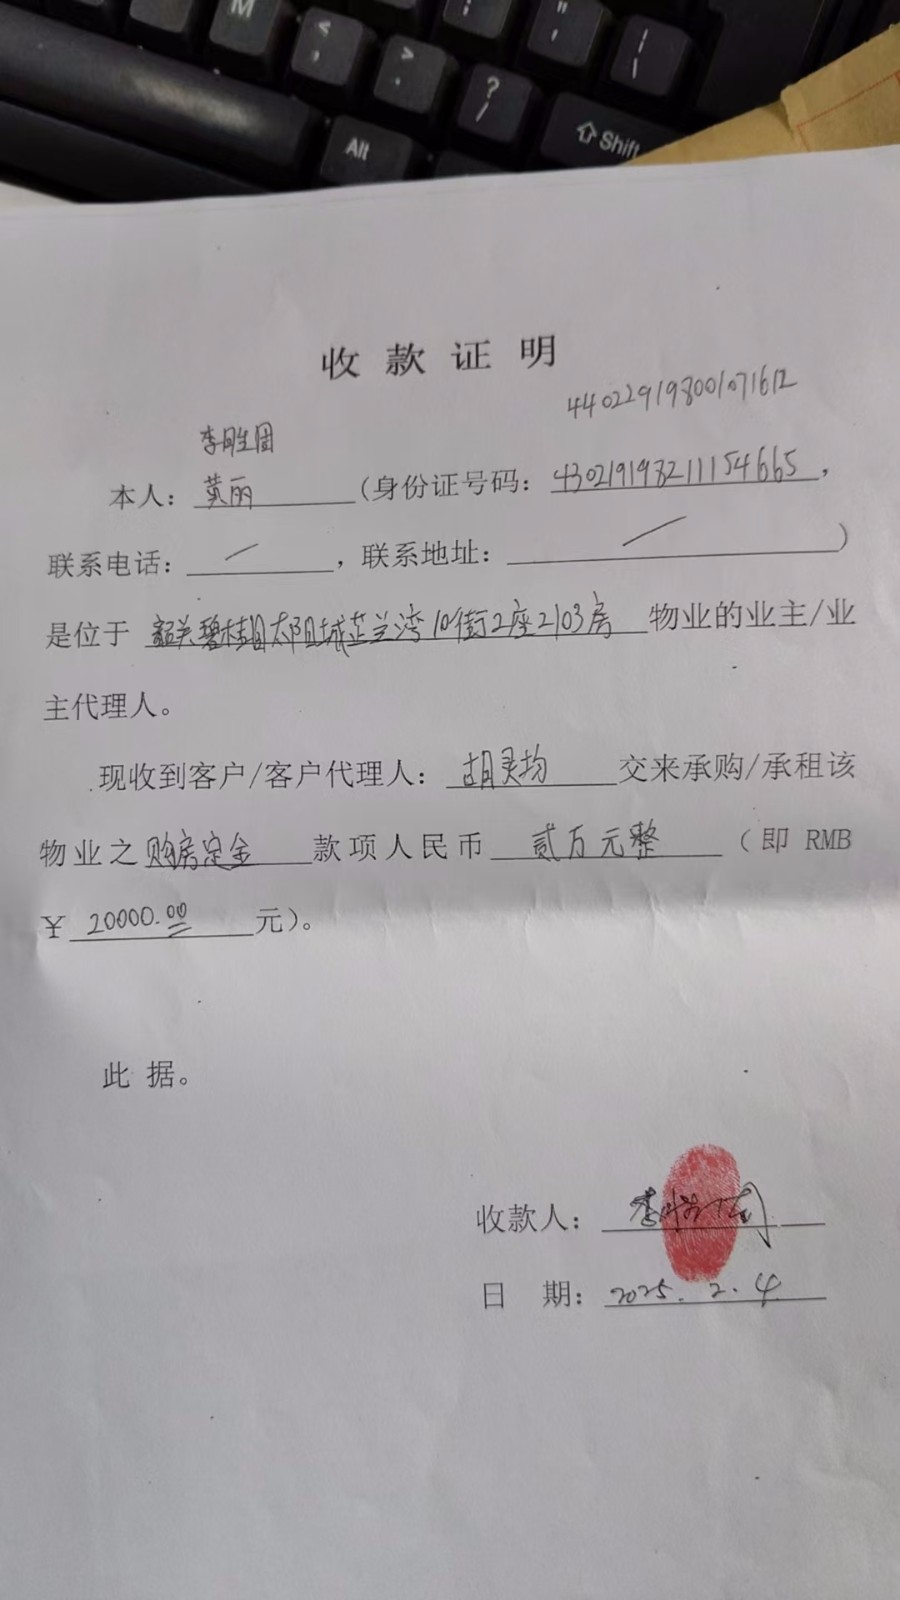 M < , > . ? / : ; " ' | \
Alt ⇧ Shift
收款证明
440229198001071612
李胜国
本人：黄丽（身份证号码：430219198211154665，
联系电话：/，联系地址：/）
是位于 韶关碧桂园太阳城芷兰湾10街2座2103房 物业的业主/业
主代理人。
现收到客户/客户代理人：胡灵均 交来承购/承租该
物业之购房定金 款项人民币 贰万元整 （即 RMB
￥20000.00 元）。
此 据。
收款人：
日 期：2025.2.4